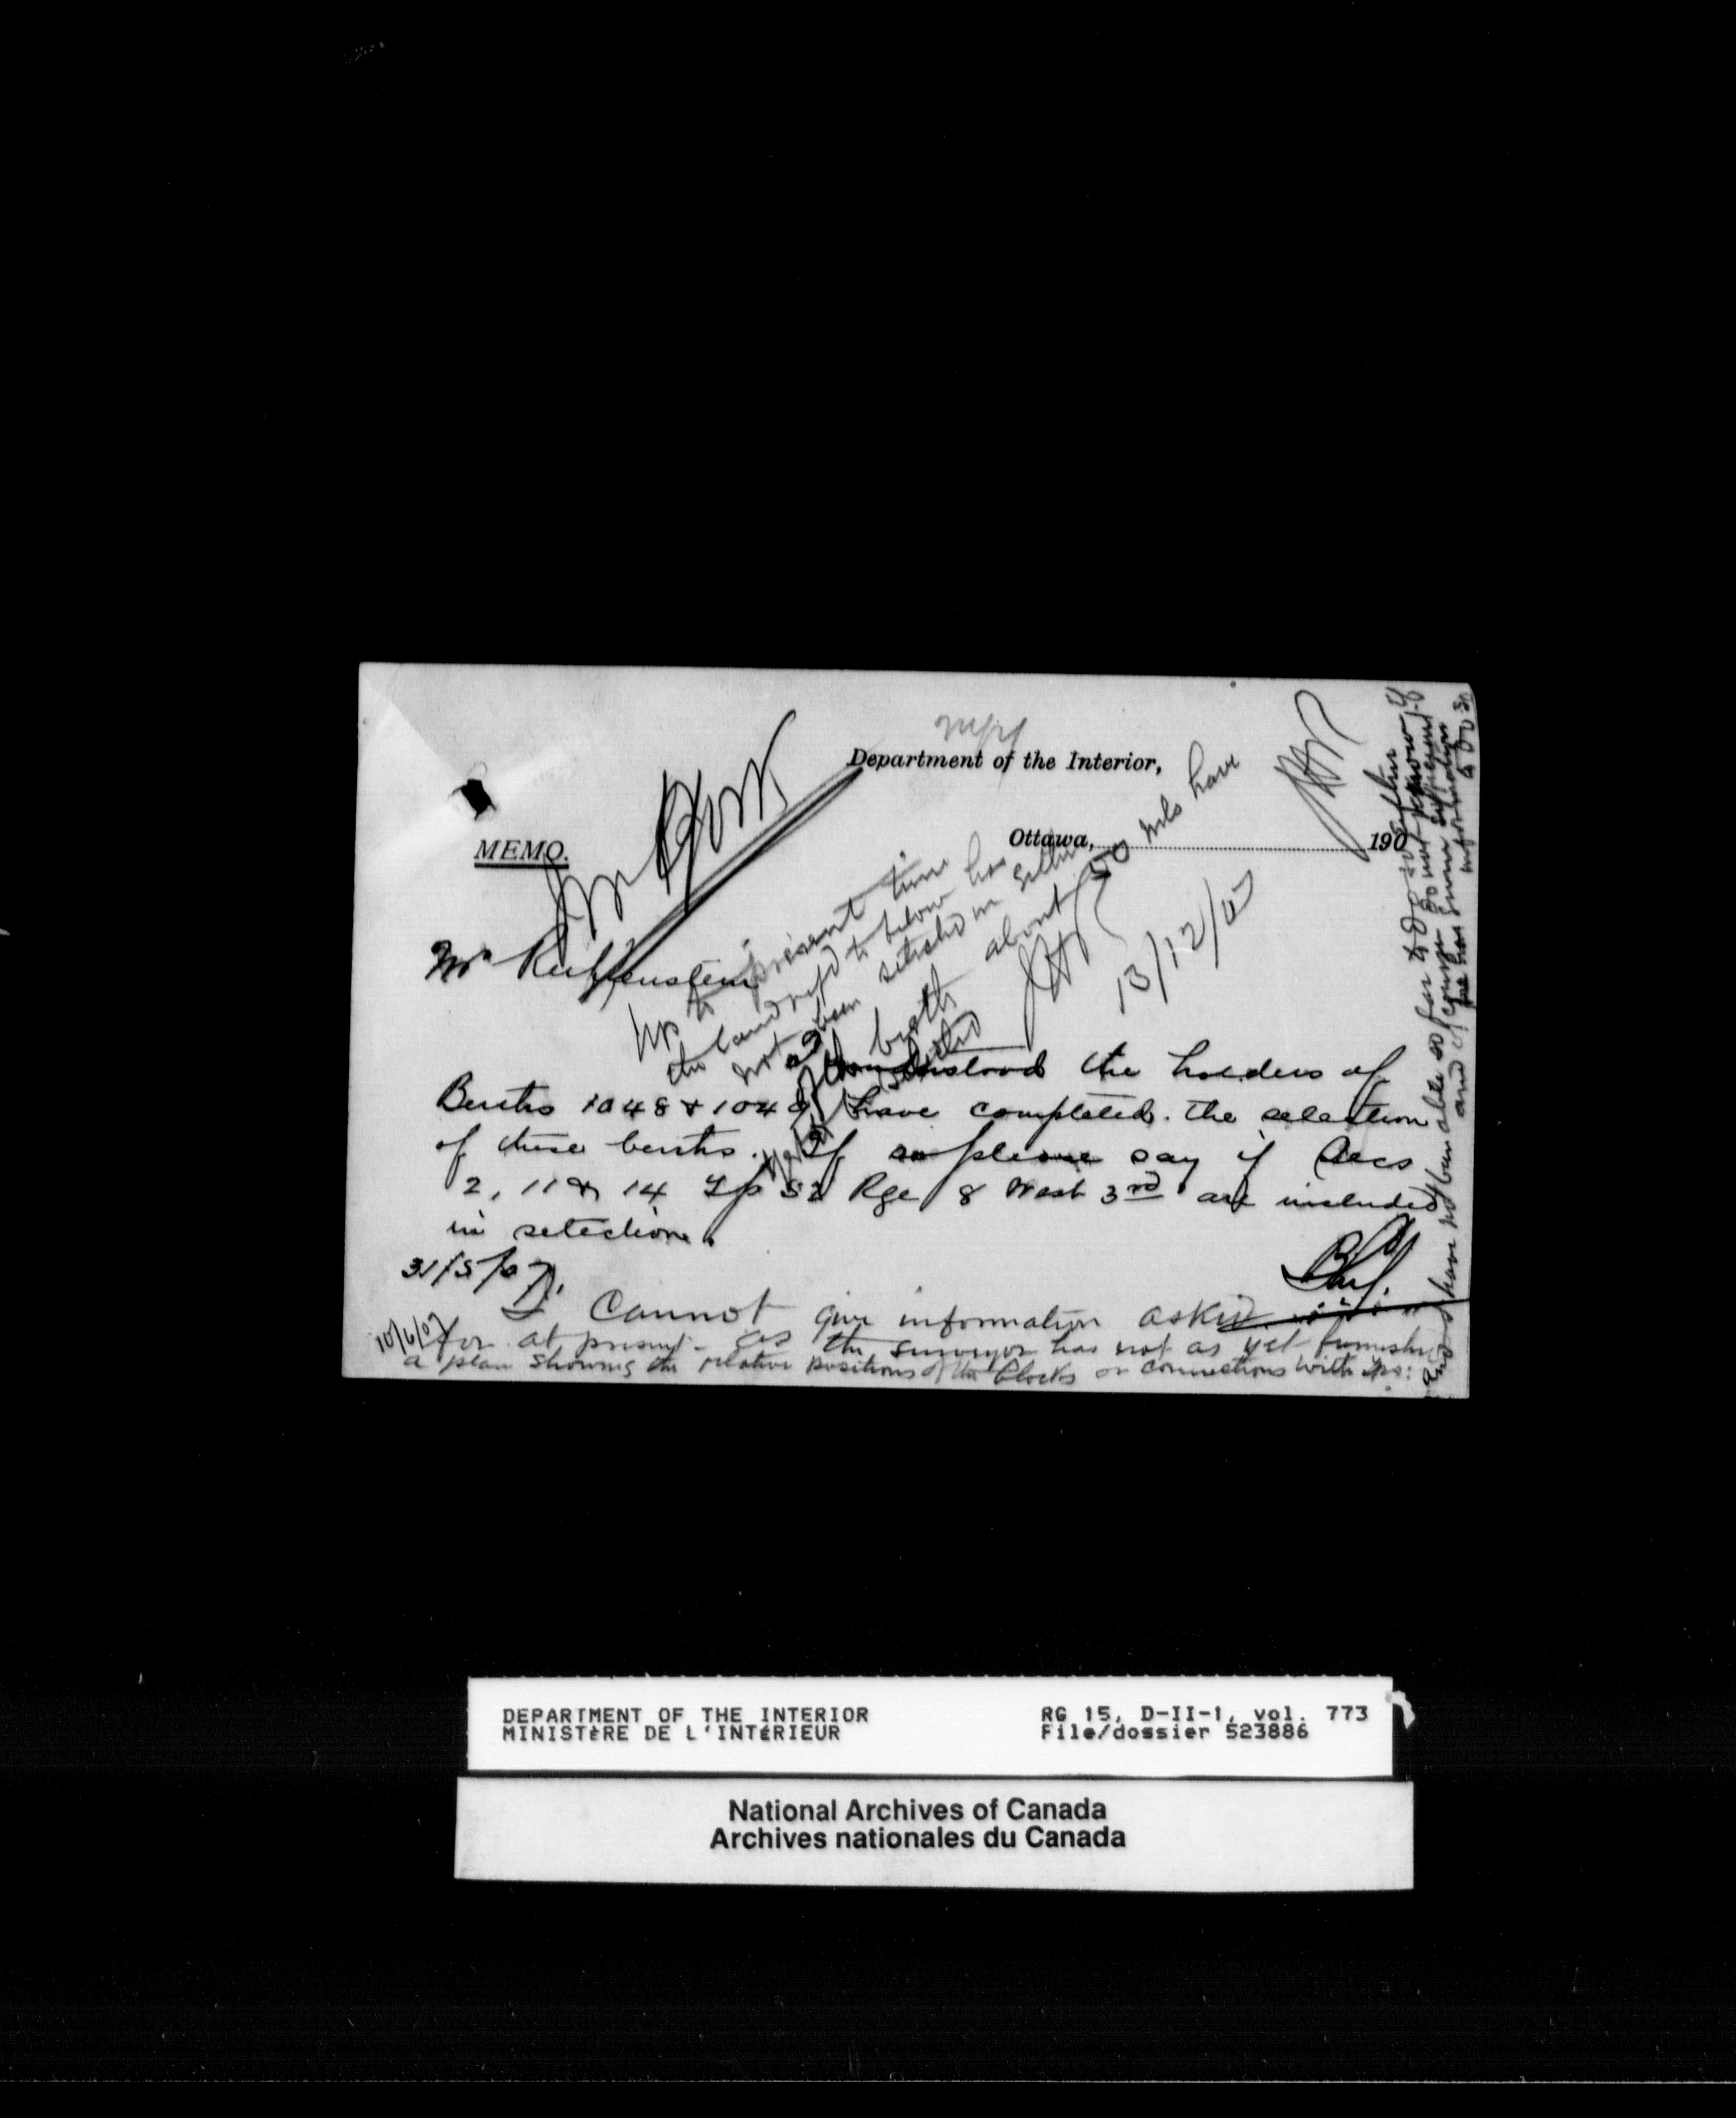 Department of the Interior,
MEMO.
Ottawa, 190
Mr
Up to present time
the land refd to below has
not been selected in either
berth about 50 mls have
13/12/07
understood the holders of
Berths 1048 & 1049 have completed the selection
of these berths. If so please say if Secs
2, 11 & 14 Tp 52 Rge 8 West 3rd are included
in selection.
31/5/07.
I cannot give information asked
10/6/07
for at present as the surveyor has not as yet furnished
a plan showing the relative positions of the blocks or connections with
have not been able so far to do so
DEPARTMENT OF THE INTERIOR
MINISTÈRE DE L'INTÉRIEUR
RG 15, D-II-1, vol. 773
File/dossier 523886
National Archives of Canada
Archives nationales du Canada